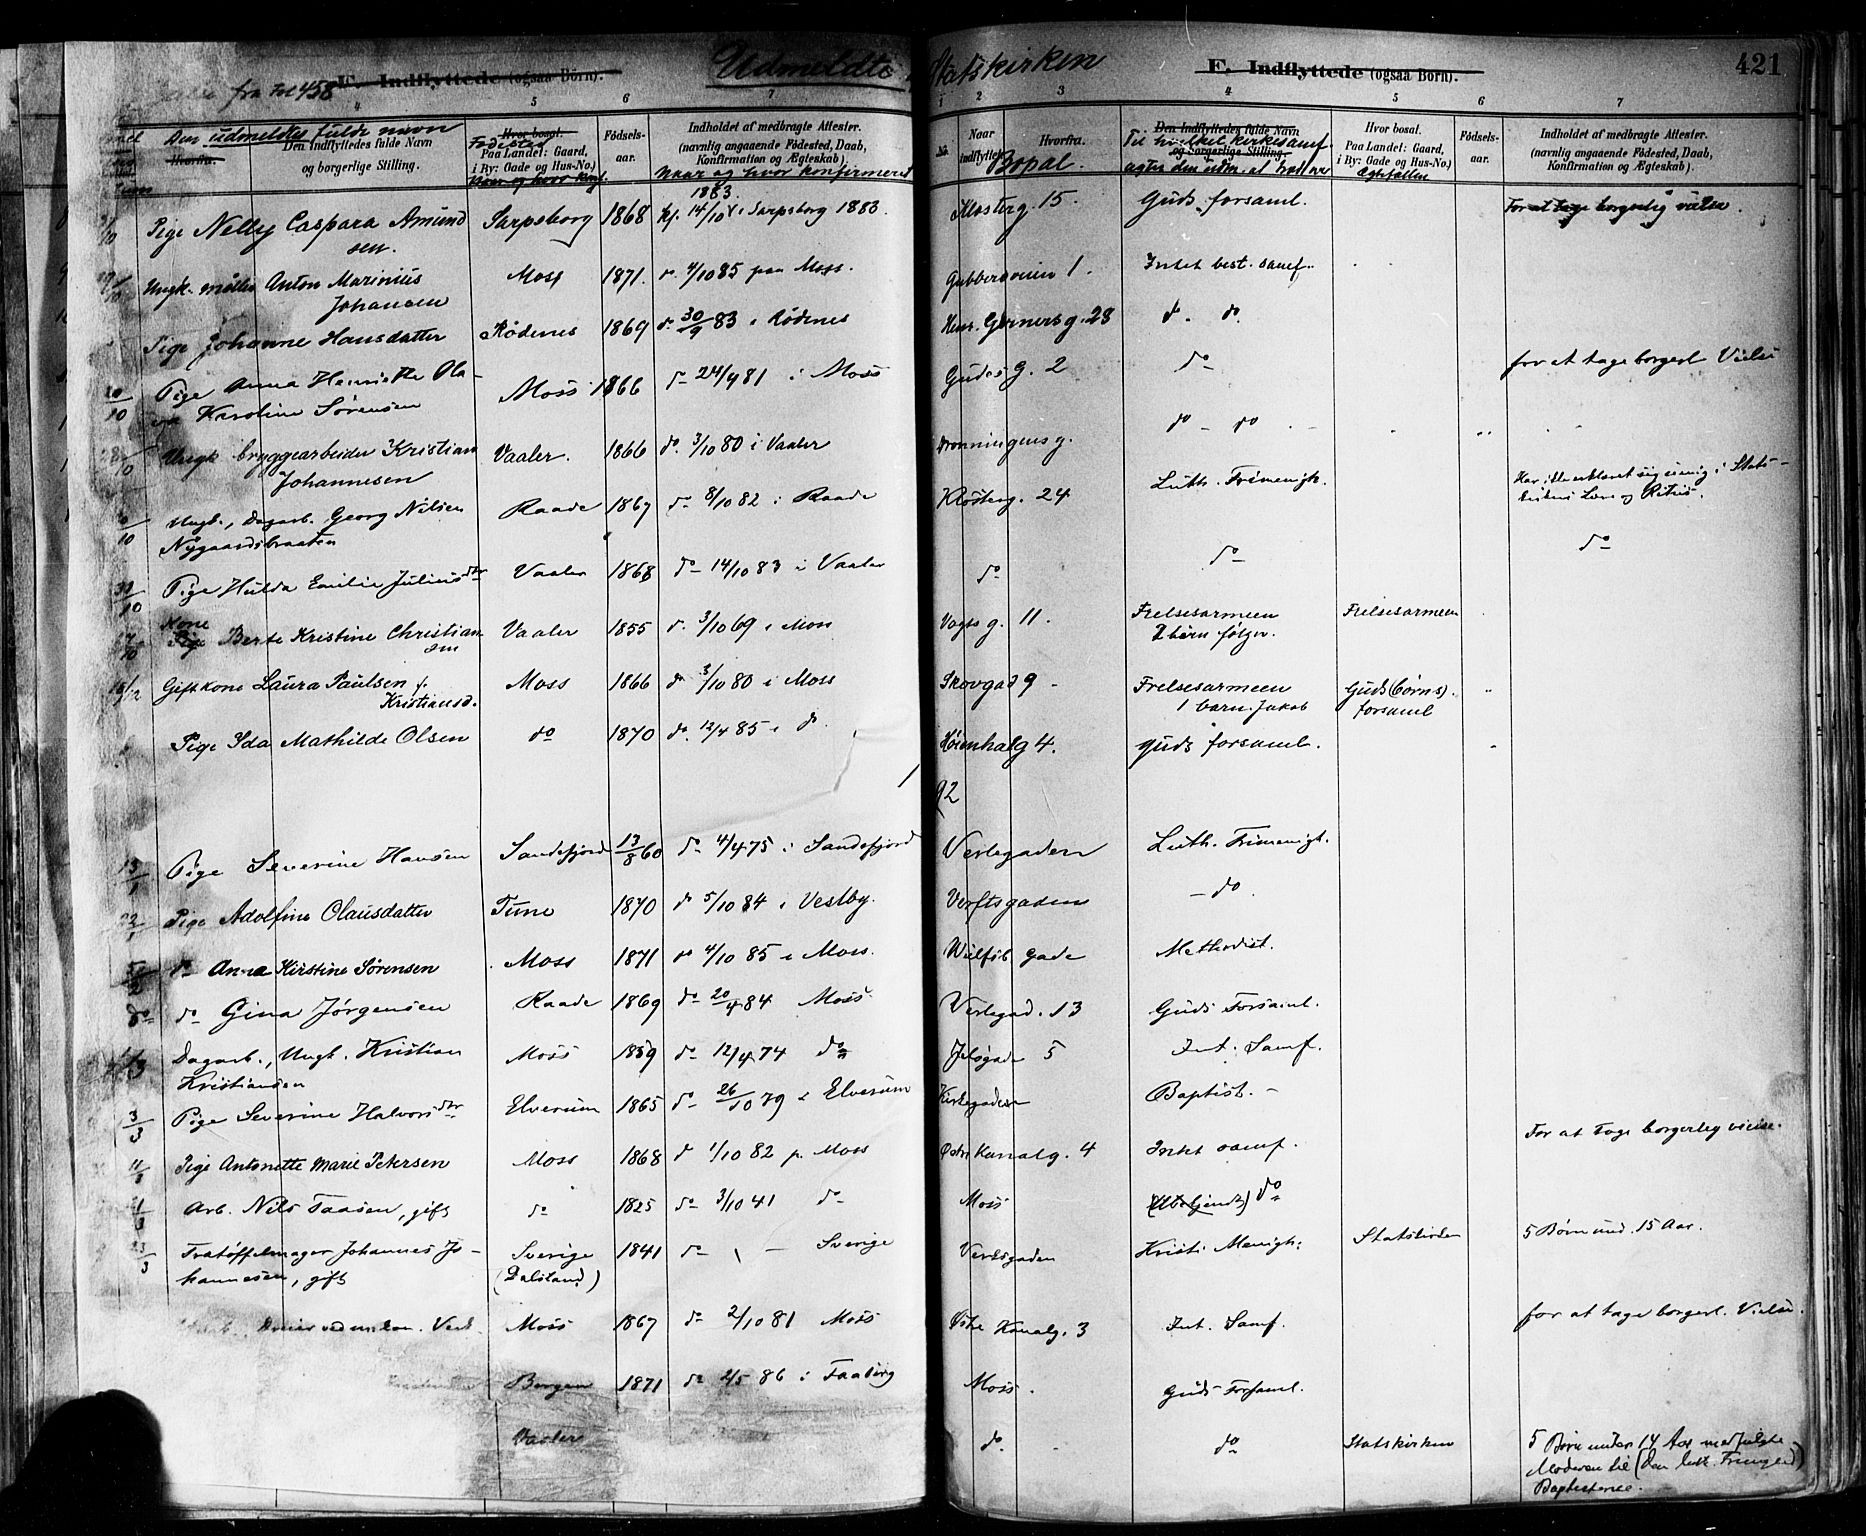 Udmeldte Statskirken
421
fra Fol 458
E. Indflyttede (ogsaa Børn).
E. Indflyttede (ogsaa Børn).
4 5 6 7 1 2 3 4 5 6 7
Den udmeldtes fulde navn
Hvorfra.
Den Indflyttedes fulde Navn
og borgerlige Stilling.
Hvor bosat.
Fødested
Paa Landet: Gaard,
i By: Gade og Hus-No.)
Naar og hvor konf.
Fødsels-
aar.
Indholdet af medbragte Attester.
(navnlig angaaende Fødested, Daab,
Konfirmation og Ægteskab).
Naar og hvor konfirmeret
No.
Naar
indflyttet.
Hvorfra.
Bopæl.
Den Indflyttedes fulde Navn
og borgerlige Stilling.
Til hvilket kirkesamf.
agter den udm. at
Hvor bosat.
Paa Landet: Gaard,
i By: Gade og Hus-No.)
Ægtefællen
Fødsels-
aar.
Indholdet af medbragte Attester.
(navnlig angaaende Fødested, Daab,
Konfirmation og Ægteskab).
1883
Pige Nelly Caspara Amund
sen. Sarpsborg 1868 kf. 14/10 i Sarpsborg 1883. Klosterg. 15. Guds forsaml. For at tage borgerlig vielse.
Ungk. møller Anton Marinius
Johansen Moss 1871. do 4/10 85 paa Moss. Gubberveien 1. Intet best. samf.
Pige Johanne Hansdatter Rødenes 1869 do 30/9 83 i Rødenes Henr. Gerners g. 28 do. do.
20/10 Pige Anna Henriette Ola-
va Karoline Sørensen Moss 1866 do 24/4 81 i Moss Gudes g. 2 do for at tage borgerl. Vielse
28/10 Ungk bryggearbeider Kristian
Johannesen Vaaler. 1866 do. 3/10 80 i Vaaler Dronningens g. do - do
Ungk., Dagarb. Georg Nilsen
Nygaardsbraaten Raade 1867 do 8/10 82 i Raade Klosterg. 24 Luth. Frimenigh. Har ikke erklæret sig uenig i Stats-
kirkens Lære og Ritus.
30/10 Pige Hulda Emilie Juliusdtr Vaaler 1868 do 14/10 83 i Vaaler do do do
Kone
Pige Berte Kristine Christian
sen Vaaler 1855 do. 3/10 69 i Moss Vogts g. 11. Frelsesarmeen Frelsesarmeen
2 børn følger.
18/12 Gift kone Laura Paulsen f.
Kristiansd. Moss 1866 do 3/10 80 i Moss Skovgad 9 - Frelsesarmeen Guds (børns)
1 barn. Jakob forsaml
Pige Ida Mathilde Olsen do 1870 do. 12/4 85 i do. Høienhalg 4. Guds forsaml.
1 92
13/1 Pige Severine Hansen Sandefjord 13/8 60 do 4/4 75 i Sandefjord Verlegaden Luth. Frimenigh.
22/1 Pige Adolfine Olausdatter Tune 1870 do 5/10 84 i Vestby. Verftsgaden - do.
do Anna Kirstine Sørensen Moss 1871 do 4/10 85 i Moss. Wulfsb gade Methodist.
do do Gina Jørgensen Raade 1869 do 20/4 84 Moss Verlegad. 13 Guds Forsaml.
Dagarb., Ungk. Kristian
Kristiansen Moss 1859 do 12/4 74 do Jeløgade 5 Int. Samf.
3/3 Pige Severine Halvorsdtr Elverum 1865 do 26/10 79 i Elverum Kirkegaden Baptist. -
Pige Antonette Marie Petersen Moss 1868 do 1/10 82 p. Moss Østre Kanalg. 4 Intet samf. For at tage borgerlig vielse.
Arb. Nils Taasen, gift do 1825 do 3/10 41 do Moss do
Tratøffelmager Johannes Jo-
hannesen, gift Sverige
(Dalsland) 1841 do - Sverige Verksgaden Kristi Menigh: Statskirken 5 Børn und. 15 Aar.
Moss 1867 do 2/10 81 Moss Østre Kanalg. 3 Int. Samf. for at tage borgerl. Vielse.
Bergen 1871 do 2/5 86 i Faaberg Moss. Guds Forsaml.
Vaaler do. do Statskirken 5 Børn under 14 Aar medfulgte
Moderen til (den luth. Frimenighed)
Baptisterne.